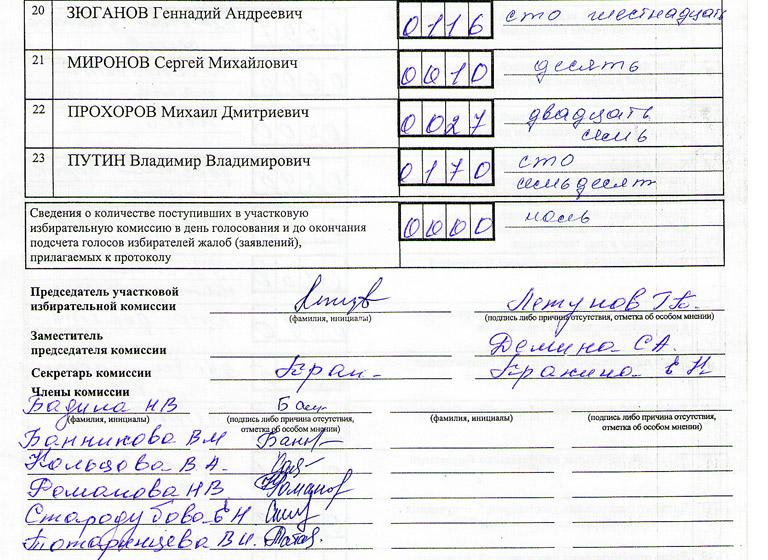 20 ЗЮГАНОВ Геннадий Андреевич 0116 сто шестнадцать
21 МИРОНОВ Сергей Михайлович 0010 десять
22 ПРОХОРОВ Михаил Дмитриевич 0027 двадцать
семь
23 ПУТИН Владимир Владимирович 0170 сто
семьдесят
Сведения о количестве поступивших в участковую 0000 ноль
избирательную комиссию в день голосования и до окончания
подсчета голосов избирателей жалоб (заявлений),
прилагаемых к протоколу
Председатель участковой
избирательной комиссии Летунов Г.В.
(фамилия, инициалы) (подпись либо причина отсутствия, отметка об особом мнении)
Заместитель
председателя комиссии Демина С.А.
Секретарь комиссии Кракина Е Н
Члены комиссии
Бадина НВ
(фамилия, инициалы) (подпись либо причина отсутствия, отметка об особом мнении) (фамилия, инициалы) (подпись либо причина отсутствия, отметка об особом мнении)
Банникова В М
Кольцова В А.
Романова НВ Романов
Стародубова Е Н
Татаринцева В И.